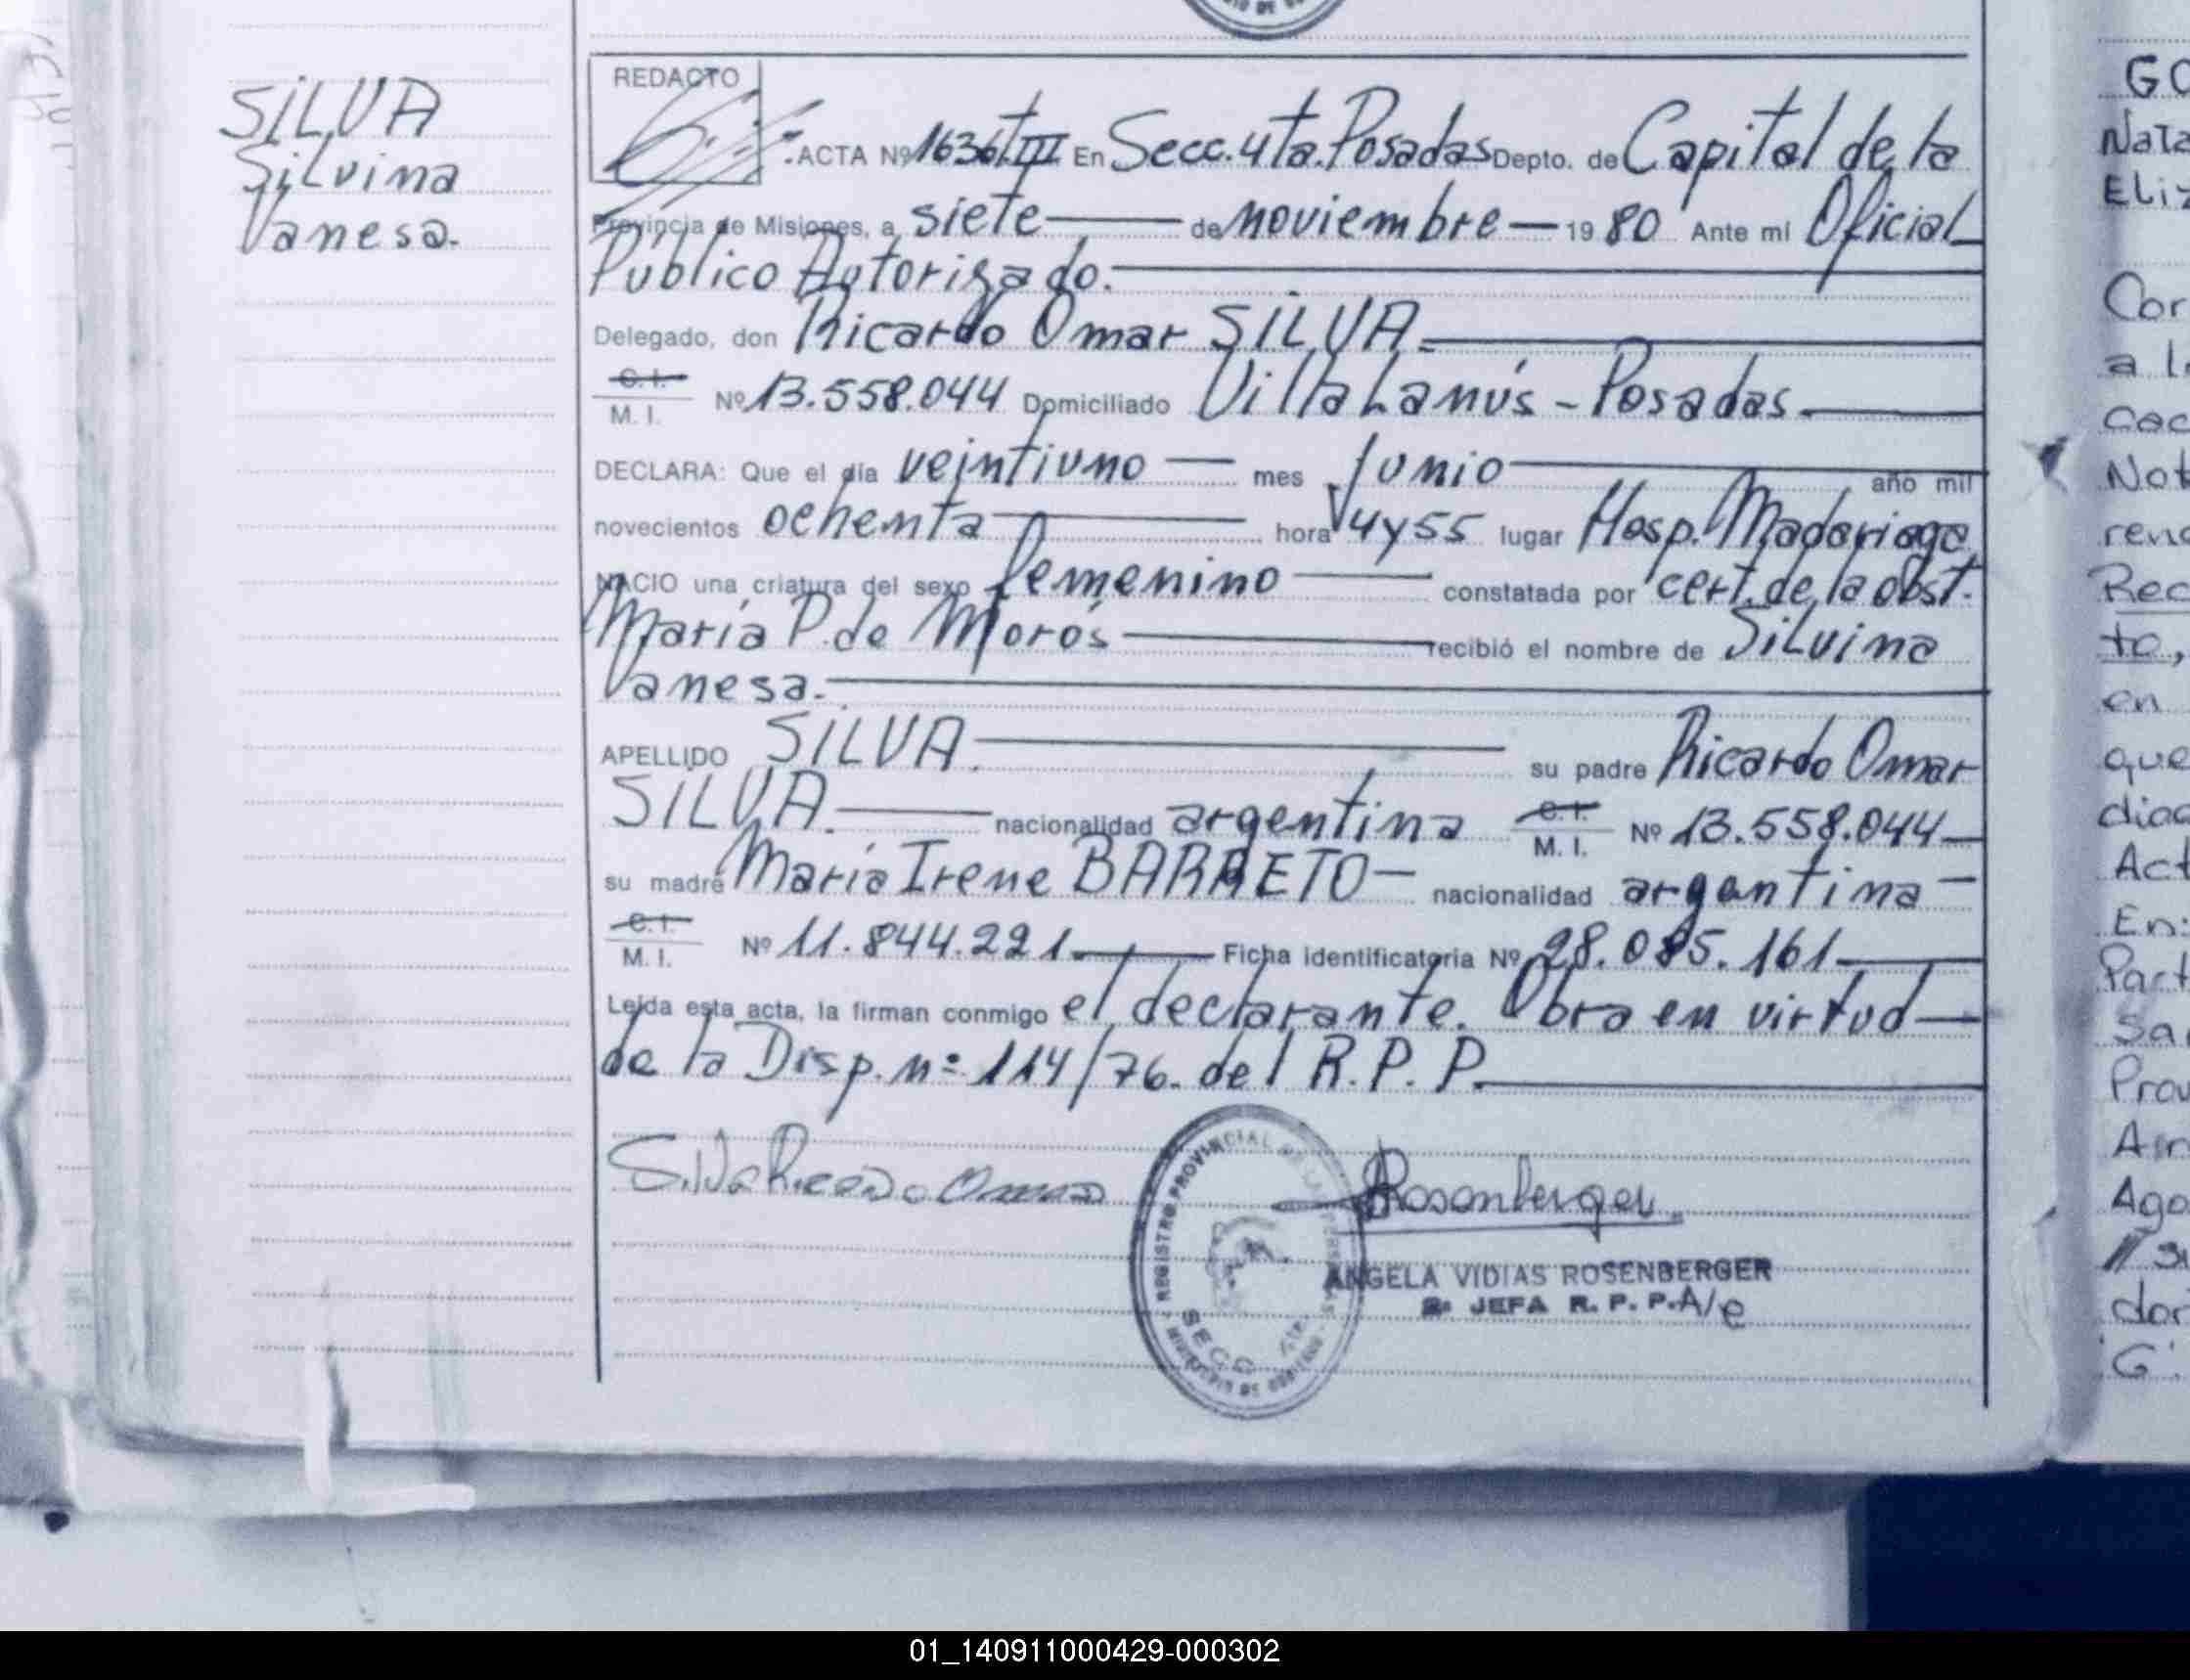 SILVA
Silvina
Vanesa.
REDACTO
ACTA Nº 1636 T III En Secc. 4ta. Posadas Depto. de Capital de la
Provincia de Misiones, a siete de noviembre 19 80 Ante mí Oficial
Público Autorizado.
Delegado, don Ricardo Omar SILVA
C. I.
M. I. Nº 13.558.044 Domiciliado Villa Lanús - Posadas.
DECLARA: Que el día veintiuno mes Junio año mil
novecientos ochenta hora 4 y 55 lugar Hosp. Madariaga
NACIO una criatura del sexo femenino constatada por cert. de la obst.
María P. de Morós recibió el nombre de Silvina
Vanesa.
APELLIDO SILVA. su padre Ricardo Omar
SILVA. nacionalidad argentina C. I. M. I. Nº 13.558.044
su madre María Irene BARRETO nacionalidad argentina
C. I.
M. I. Nº 11.844.221 Ficha identificatoria Nº 28.085.161
Leída esta acta, la firman conmigo el declarante. Obra en virtud
de la Disp. nº 114/76. del R. P. P.
Silva Ricardo Omar
Rosenberger
REGISTRO PROVINCIAL DE LAS PERSONAS
SECC. 4ta.
MINISTERIO DE GOBIERNO
ANGELA VIDIAS ROSENBERGER
2a JEFA R. P. P. A/e
GO
Nata
Eliz
Cor
a l
cac
Not
reno
Rec
to,
en
que
diac
Act
En:
Part
Sa
Prov
Ago
dor
G.
01_140911000429-000302